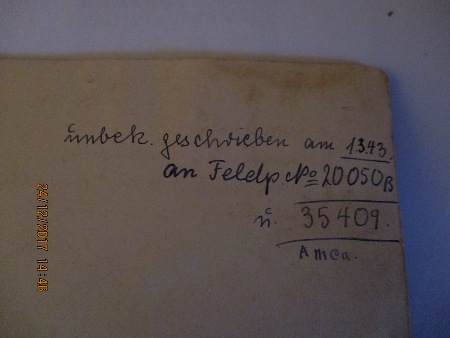 unbek. geschrieben am 1.3.43.
an Feldp. No 20050B
u. 35409.
Amca.
29/12/2017 19:46